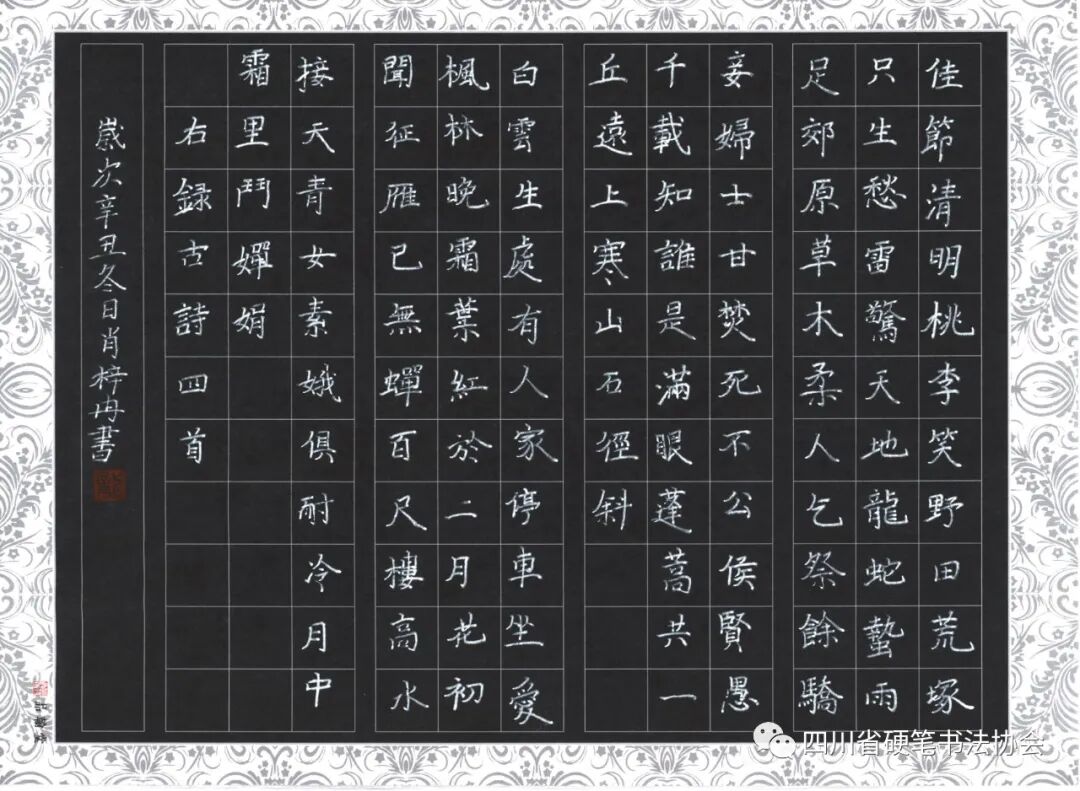 佳節清明桃李笑野田荒塚
只生愁雷驚天地龍蛇蟄雨
足郊原草木柔人乞祭餘驕
妾婦士甘焚死不公侯賢愚
千載知誰是滿眼蓬蒿共一
丘遠上寒山石徑斜
白雲生處有人家停車坐愛
楓林晚霜葉紅於二月花初
聞征雁已無蟬百尺樓高水
接天青女素娥俱耐冷月中
霜里鬥嬋娟
右録古詩四首
歲次辛丑冬日肖梓冉書
四川省硬笔书法协会